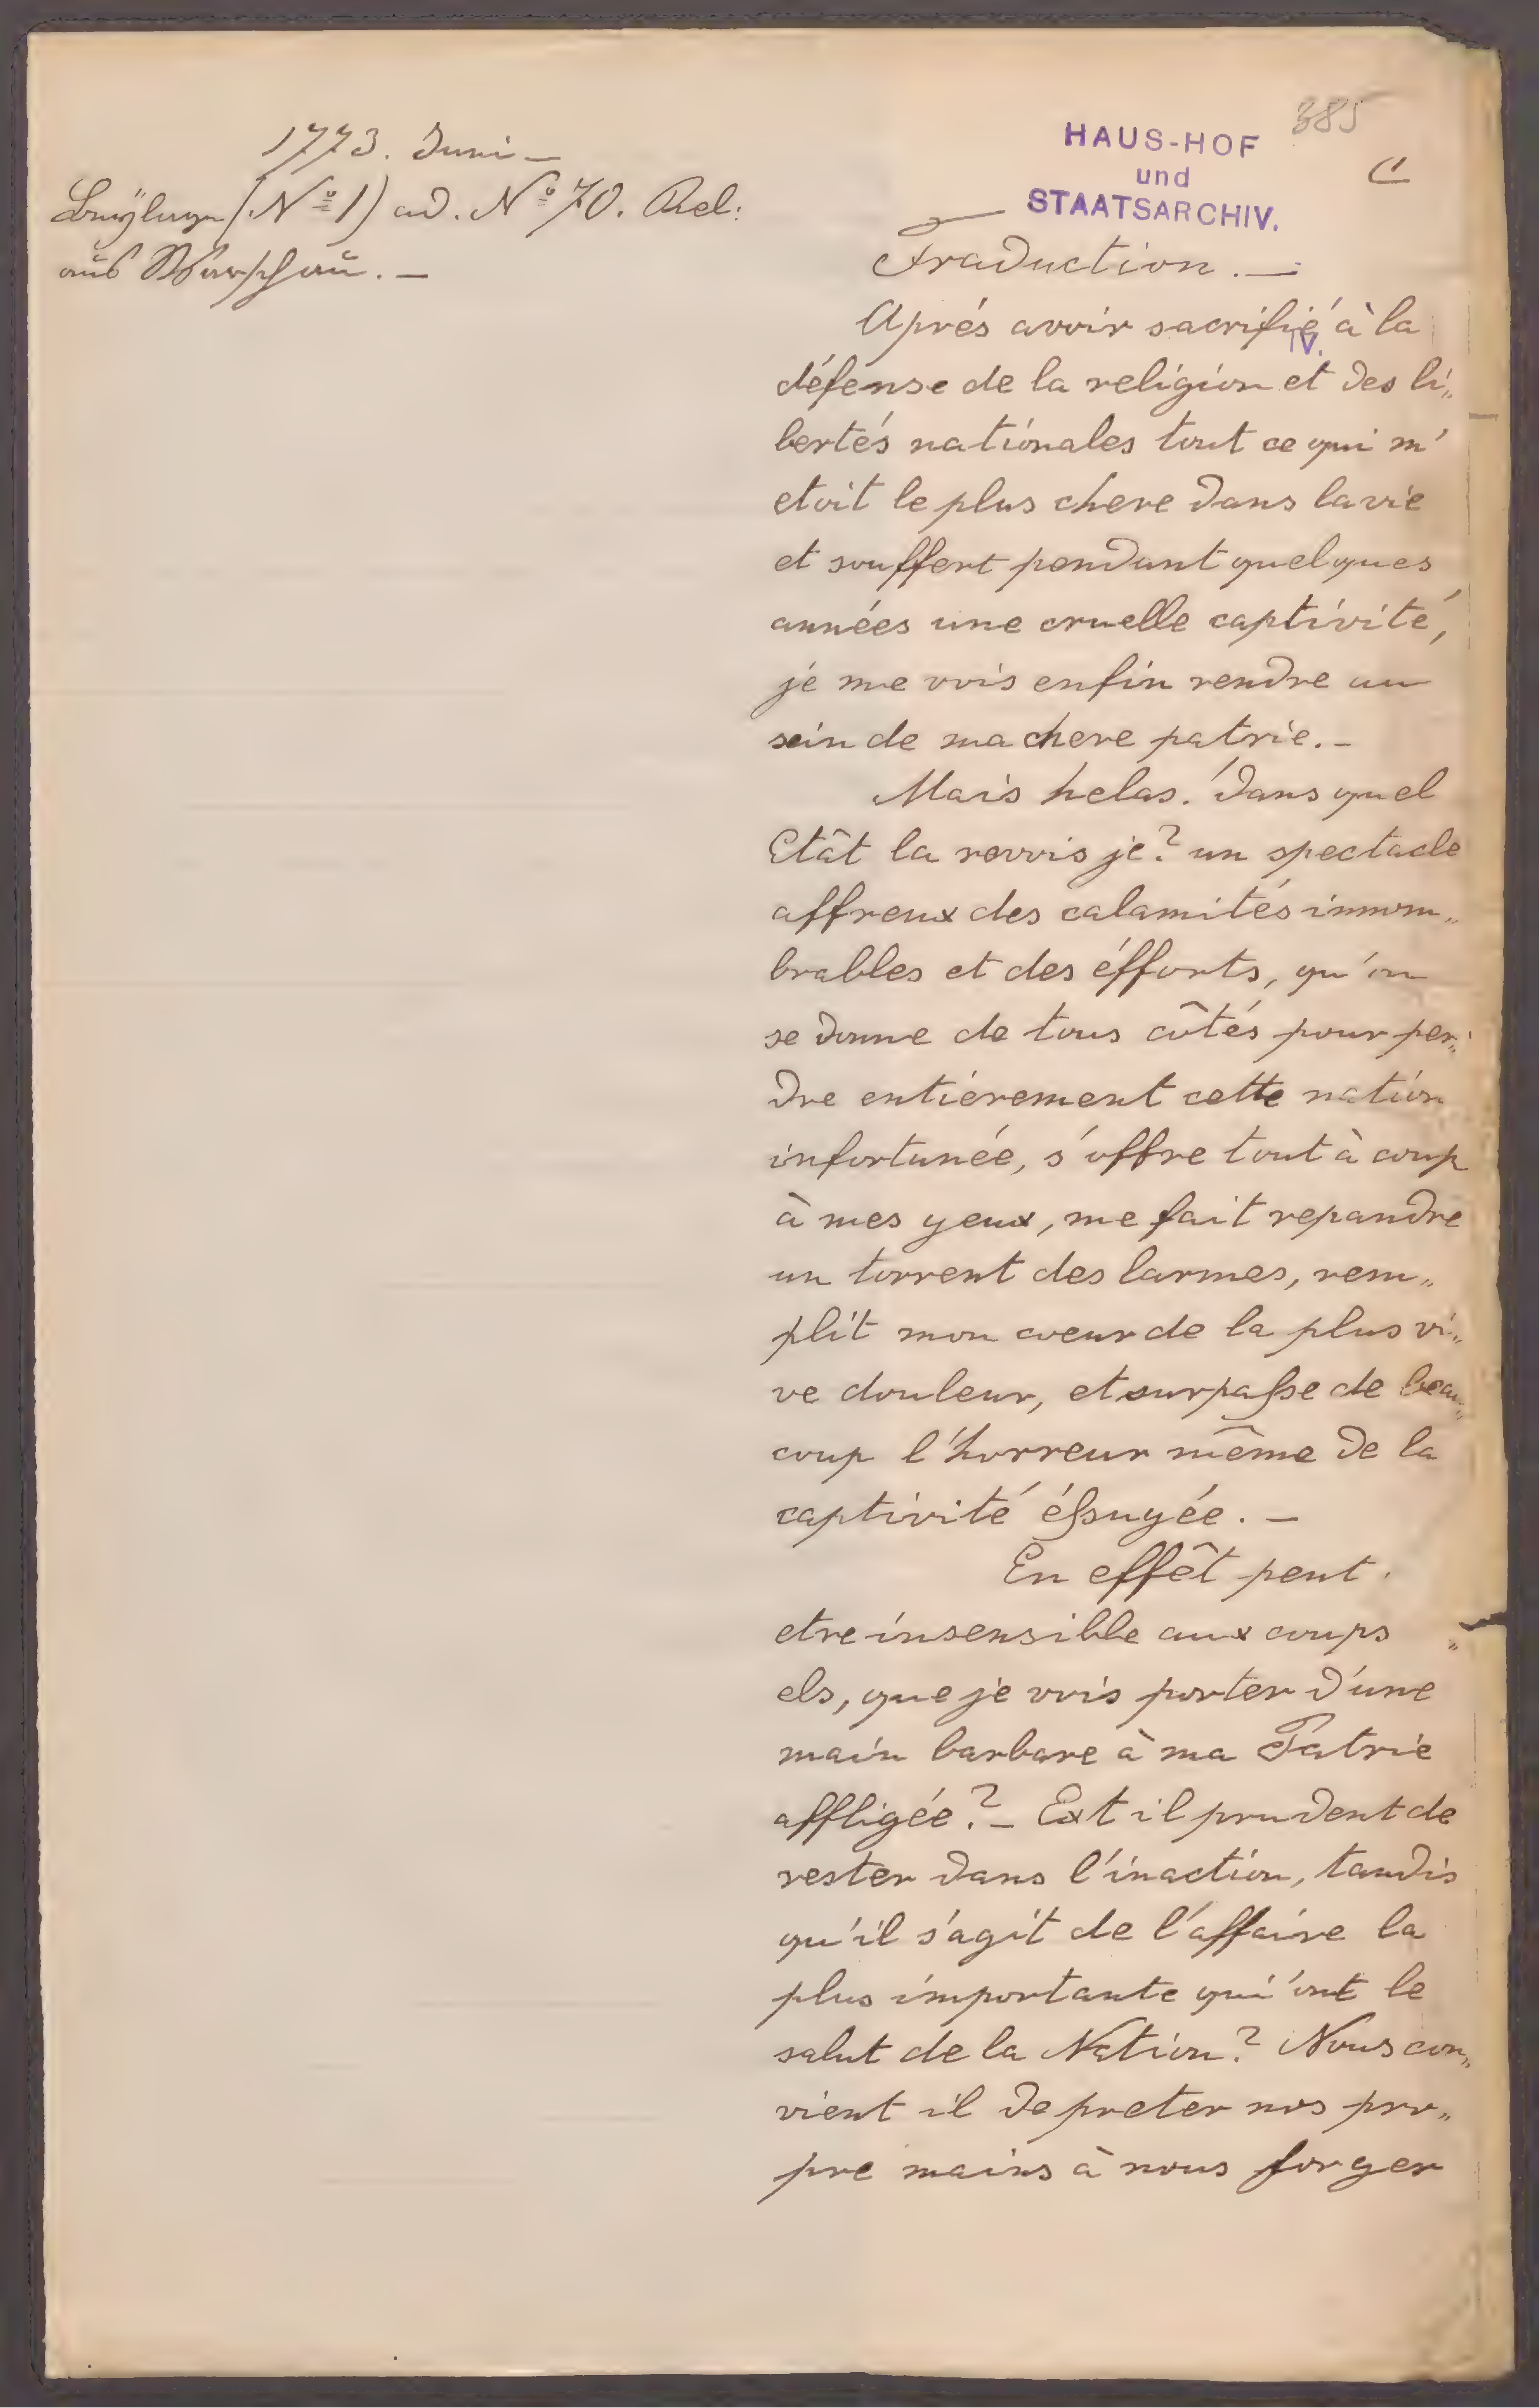 1773. Juni –
Beÿlage (Nº 1) ad. Nº 70. Rel:
aus Warschau. –
385
HAUS-HOF
und
STAATSARCHIV.
IV.
Traduction. –
Aprés avoir sacrifié à la
défense de la religion et des li„
bertés nationales tout ce qui m'
etoit le plus chere dans la vie
et souffert pendant quelques
années une cruelle captivité,
je me vois enfin rendre au
sein de ma chere patrie. –
Mais helas! dans quel
Etât la revois je? un spectacle
affreux des calamités innom„
brables et des éfforts, qu'on
se donne de tous côtés pour per„
dre entiérement cette nation
infortunée, s'offre tout à coup
à mes yeux, me fait repandre
un torrent des larmes, rem„
plit mon coeur de la plus vi„
ve douleur, et surpaſse de beau„
coup l'horreur même de la
captivité éſsuyée. –
En effêt peut
etre insensible aux coups
els, que je vois porter d'une
main barbare à ma Patrie
affligée? – Est il prudent de
rester dans l'inaction, tandis
qu'il s'agit de l'affaire la
plus importante qui'ont le
salut de la Nation? Nous con„
vient il de preter nos pro„
pre mains à nous forger